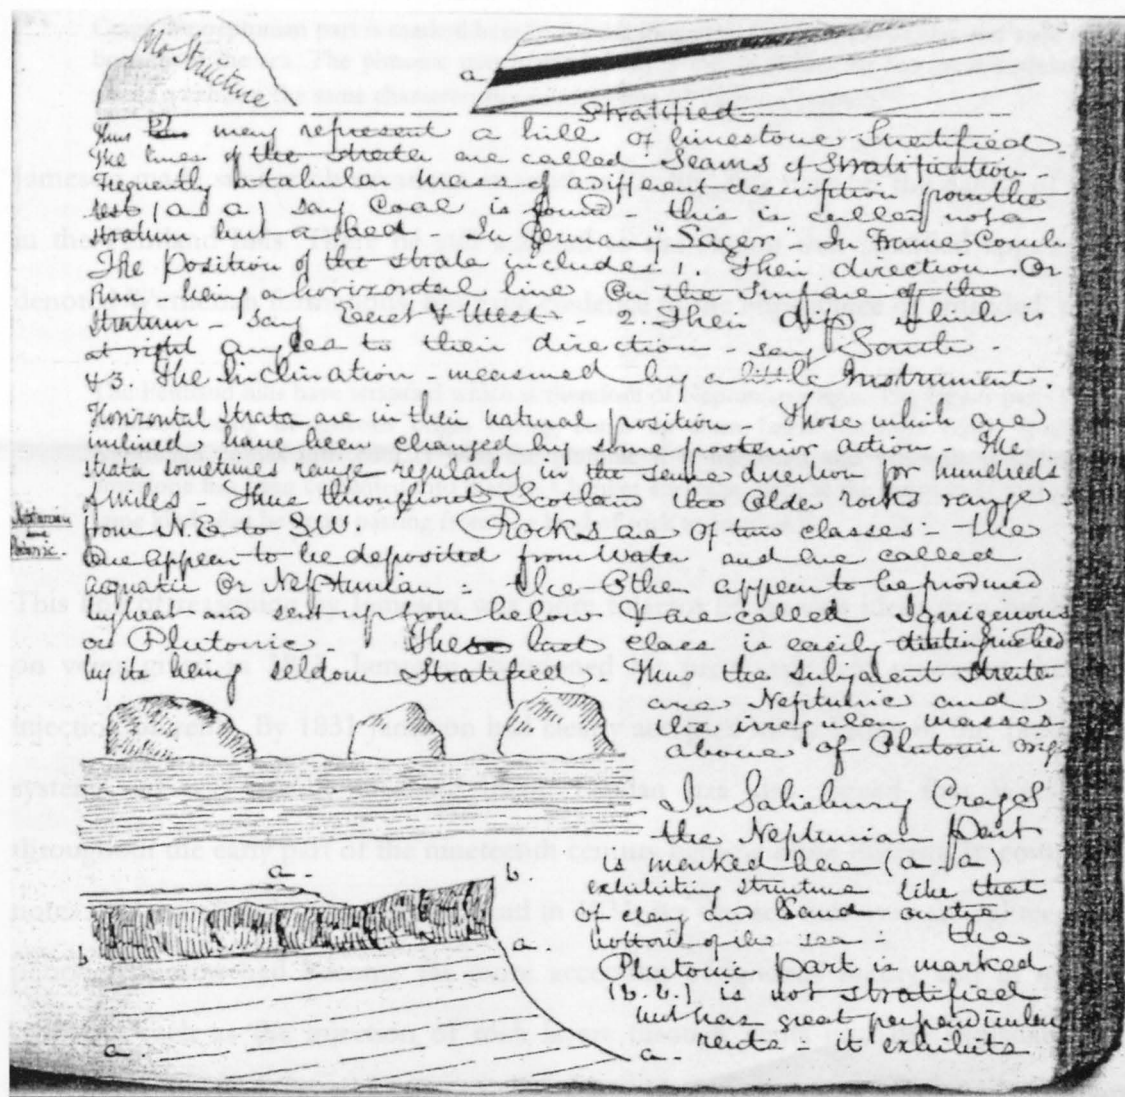 No Structure
a
Stratified
Thus may represent a hill of limestone Stratified.
The lines of the strata are called Seams of Stratification.
Frequently a tabular mass of a different description from the
rest (a a) say Coal is found - this is called not a
stratum but a bed - in In France
The Position of the strata includes 1. Their direction or
being a horizontal line on the Surface of the
Stratum - say East & West - 2. Their dip which is
at right angles to their direction - say South -
& 3. The Inclination - measured by a little Instrument.
Horizontal Strata are in their natural position - Those which are
inclined have been changed by some posterior action. The
strata sometimes range regularly in the same direction for hundreds
of Miles - Thus throughout Scotland the Older rocks range
from N.E. to S.W. - Rocks are of two classes - the
Neptunian
and
Plutonic.
One appear to be deposited from Water and are called
aquatic or Neptunian - the Other appear to be produced
by heat and sent up from below & are called Ignigenous
or Plutonic - The last class is easily distinguished
by its being seldom Stratified - Thus the subjacent Strata
are Neptunic and
the irregular masses
above of Plutonic orig
In Salisbury Crags
the Neptunian Part
is marked here (a a)
exhibiting structure like that
of clay or Sand on the
bottom of the sea - the
Plutonic part is marked
(b.b.) is not stratified
but has great perpendicular
rents - it exhibits
a
b.
b
a
a
a